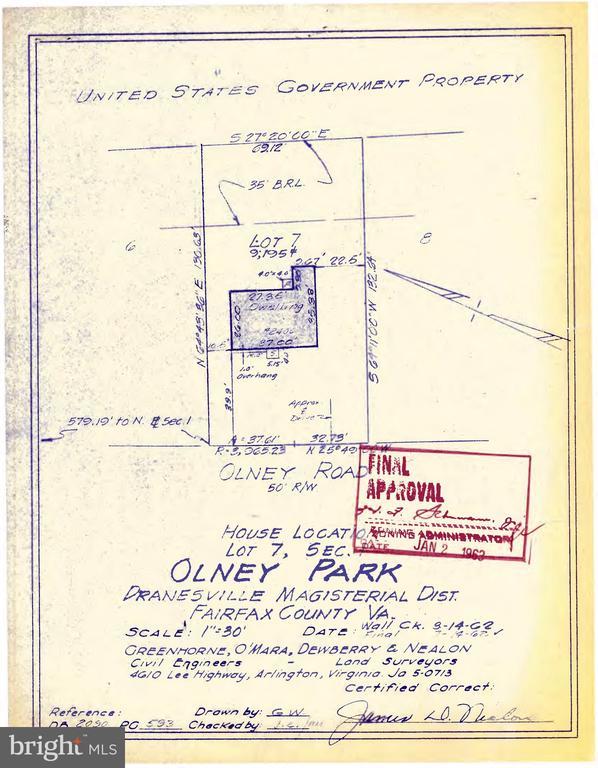 UNITED STATES GOVERNMENT PROPERTY
S 27° 20' 00" E
69.12'
35' B.R.L.
6
8
LOT 7
9,195
22.5'
4.0'x4.0'
27.35
Dwelling
26.00
37.00
10.5'
5.15'
1.0'
Overhang
39.9'
Approx.
Drive
579.19' to N. Sec. 1
A = 37.61' 32.73'
R = 3,065.23 N 25° 49'
OLNEY ROAD
50' R/W
FINAL
APPROVAL
ZONING ADMINISTRATOR
DATE JAN 2 1963
HOUSE LOCATION
LOT 7, SEC.
OLNEY PARK
DRANESVILLE MAGISTERIAL DIST.
FAIRFAX COUNTY VA.
SCALE: 1"=30' DATE: Wall Ck. 8-14-62
Final
GREENHORNE, O'MARA, DEWBERRY & NEALON
Civil Engineers - Land Surveyors
4610 Lee Highway, Arlington, Virginia Ja 5-0713
Certified Correct:
Reference: Drawn by: G.W.
DB 2090 PG 593 Checked by:
James D. Nealon
bright MLS